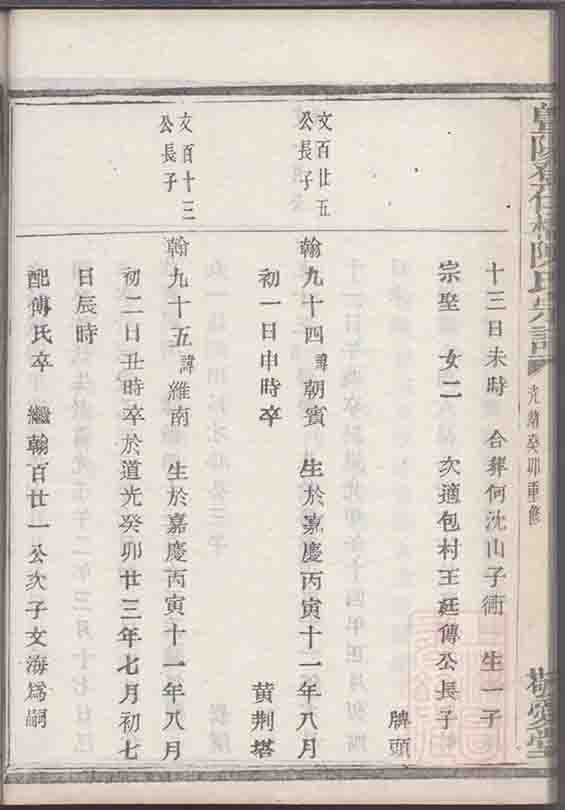 暨陽 橋陳氏宗譜 光緒癸卯重修 敬愛堂
十三日未時 合葬何沈山子衕 生一子
宗堃 女二 次適包村王廷傳公長子
牌頭
文百廿五
公長子
翰九十四 諱朝賓 生於嘉慶丙寅十一年八月
初一日申時卒
黃荆塔
文百十三
公長子
翰九十五 諱維南 生於嘉慶丙寅十一年八月
初二日丑時卒於道光癸卯廿三年七月初七
日辰時
配傅氏卒 繼翰百廿一公次子文海爲嗣